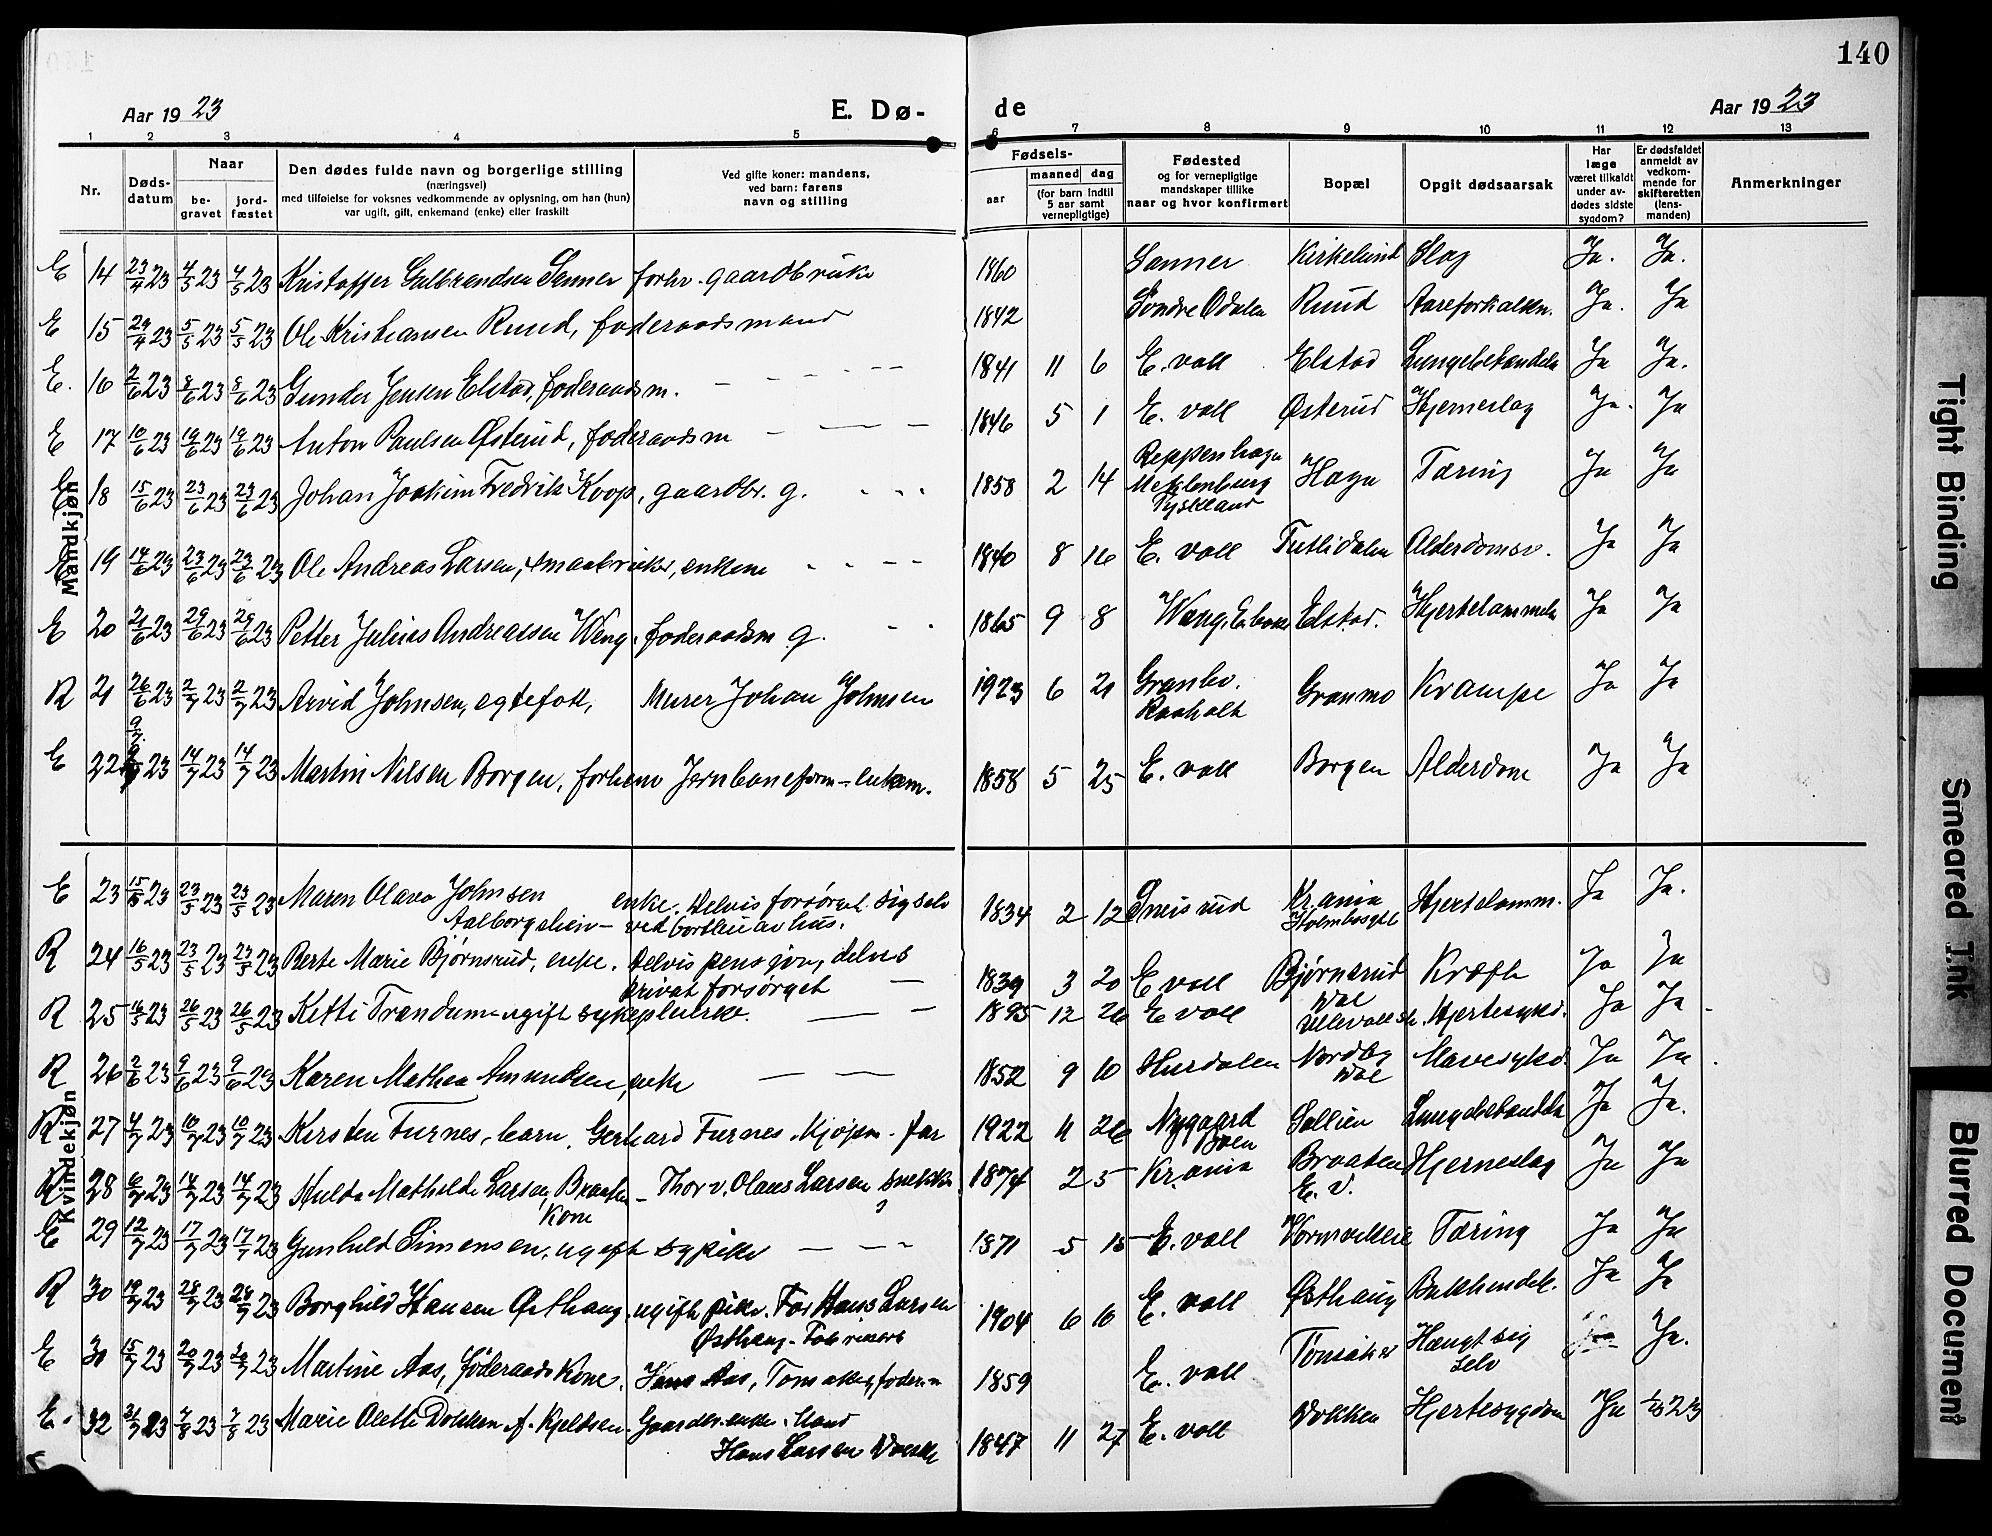 140
Aar 1923 E. Dø- de Aar 1923
1 2 3 4 5 6 7 8 9 10 11 12 13
Nr. Døds-datum Naar be-gravet jord-fæstet
Den dødes fulde navn og borgerlige stilling
(næringsvei)
med tilføielse for voksnes vedkommende av oplysning, om han (hun)
var ugift, gift, enkemand (enke) eller fraskilt
Ved gifte koner: mandens,
ved barn: farens
navn og stilling
Fødsels-
aar maaned dag
(for barn indtil
5 aar samt
vernepligtige)
Fødested
og for vernepligtige
mandskaper tillike
naar og hvor konfirmert
Bopæl
Opgit dødsaarsak
Har
læge
været tilkaldt
under av-
dødes sidste
sygdom?
Er dødsfaldet
anmeldt av
vedkom-
mende for
skifteretten
(lens-
manden)
Anmerkninger
Mandkjøn
E 14 23/4 23 4/5 23 4/5 23 Kristoffer Gulbrandsen Sanner forhv. gaardbruke 1860 Sanner Kirkelund Slag Ja. Ja.
E 15 29/4 23 5/5 23 5/5 23 Ole Kristiansen Ruud, føderaadsmand 1842 Søndre Odalen Ruud Aareforkalkn. Ja. Ja
E. 16 2/6 23 8/6 23 8/6 23 Gunder Jensen Elstad, føderaadsm. 1841 11 6 E. voll Elstad Lungebetændels Ja Ja.
E 17 10/6 23 19/6 23 19/6 23 Anton Paulsen Østerud, føderaadsm 1846 5 1 E. voll Østerud Hjerneslag Ja. Ja
E 18 15/6 23 23/6 23 23/6 23 Johan Joakim Fredrik Koop, gaardbr. g. 1858 2 14 Reppenhagn Meklenburg Tyskland Hagn Tæring Ja Ja
E 19 14/6 23 23/6 23 23/6 23 Ole Andreas Larsen, smaabruker, enkem 1840 8 16 E. voll Tutlidalen Alderdomsv. Ja Ja
E 20 21/6 23 29/6 23 29/6 23 Petter Julius Andreassen Weng, føderaadsm g. 1865 9 8 Elstad. Hjertelammels Ja Ja
R 21 26/6 23 2/7 23 2/7 23 Arvid Johnsen, egtefødt, Murer Johan Johnsen 1923 6 21 Granbo. Raaholt Granmo Krampe Ja Ja
E 22 9/7 23 14/7 23 14/7 23 Martin Nilsen Borgen, forhenv Jernbaneform - enkem. 1858 5 25 E. voll Borgen Alderdom Ja Ja
Kvindekjøn
E 23 15/5 23 23/5 23 23/5 23 Maren Olava Johnsen enke. Delvis forsørget sig selv 1834 2 12 Sneisrud Kr.ania Hjertelamm. Ja Ja.
Aalborgslien - ved bortleie av hus.
R 24 16/5 23 23/5 23 23/5 23 Berte Marie Bjørnsrud, enke. Delvis pensjon, delvis 1839 3 20 E voll Bjørnsrud Kræft Ja Ja
privat forsørget
R 25 16/5 23 26/5 23 26/5 23 Ketti Trandum ugift sykepleierske. 1895 12 26 E voll Ullevaall Hjertesykd. Ja Ja
R 26 2/6 23 9/6 23 9/6 23 Karen Mathea Amundsen, enke 1852 9 10 Hurdalen Nordby Mavesykd. Ja Ja
R 27 4/7 23 10/7 23 10/7 23 Kirsten Furnes, barn. Gerhard Furnes kjøpm. far 1922 4 26 Nygaard Boen Sollien Lungebetændels Ja Ja.
R 28 6/7 23 14/7 23 14/7 23 Hulda Mathilde Larsen, Braaten - Thorv. Olaus Larsen snekker 1874 2 5 Kr.ania Braaten E. V. Hjerneslag Ja Ja
Kone
E 29 12/7 23 17/7 23 17/7 23 Gunhild Simensen, ugift sypike 1871 5 15 E. voll Tæring Ja Ja
R 30 19/7 23 28/7 23 28/7 23 Borghild Hansen Østhaug, ugift pike. Far Hans Larsen 1904 6 10 E. voll Østhaug Ja Ja
Østhaug -
E 31 15/7 23 20/7 23 20/7 23 Martine Aas, føderaads Kone. Hans Aas, Tønsaker, føderm 1859 E. voll Tønsaker Hængt sig selv Ja.
E. 32 31/7 23 7/8 23 7/8 23 Marie Olette Dokken f. Kjeldsen. Gaardbr.enke. Mand 1847 11 27 E. voll Dokken Hjertesygdom Ja 23
Hans Larsen Dokken
Tight Binding
Smeared Ink
Blurred Document